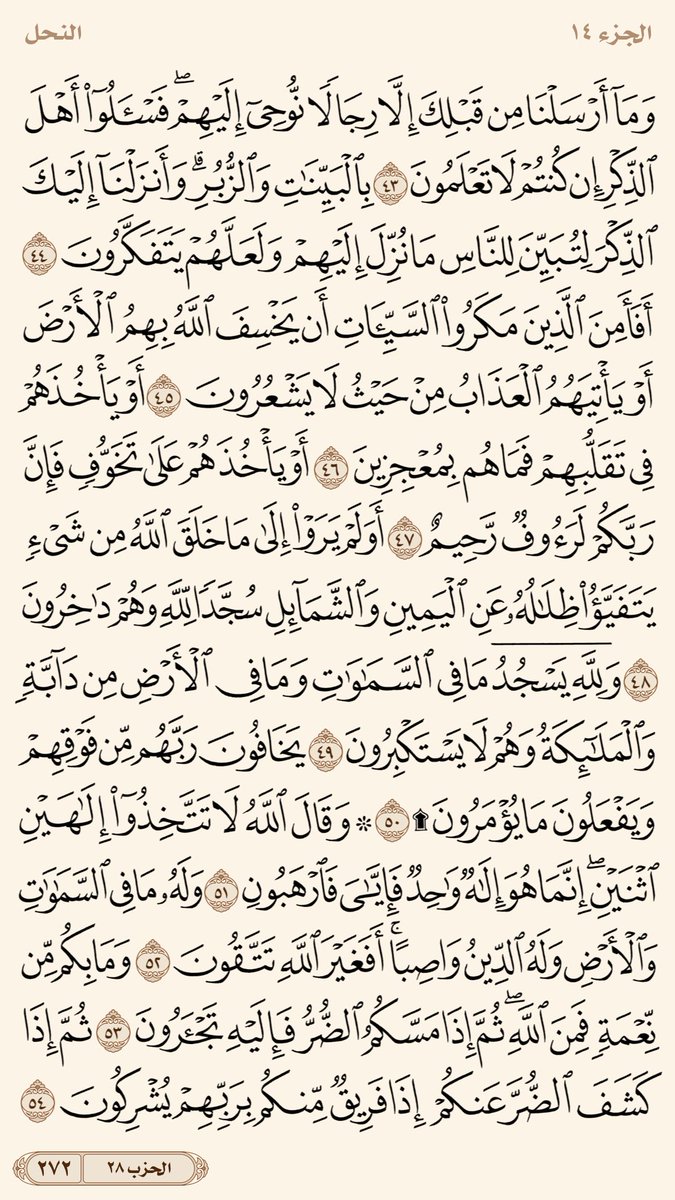 الجزء ١٤ النحل
وَمَآ أَرْسَلْنَا مِن قَبْلِكَ إِلَّا رِجَالًا نُّوحِىٓ إِلَيْهِمْ ۖ فَسْـَٔلُوٓا۟ أَهْلَ
ٱلذِّكْرِ إِن كُنتُمْ لَا تَعْلَمُونَ ٤٣ بِٱلْبَيِّنَـٰتِ وَٱلزُّبُرِ ۗ وَأَنزَلْنَآ إِلَيْكَ
ٱلذِّكْرَ لِتُبَيِّنَ لِلنَّاسِ مَا نُزِّلَ إِلَيْهِمْ وَلَعَلَّهُمْ يَتَفَكَّرُونَ ٤٤
أَفَأَمِنَ ٱلَّذِينَ مَكَرُوا۟ ٱلسَّيِّـَٔاتِ أَن يَخْسِفَ ٱللَّهُ بِهِمُ ٱلْأَرْضَ
أَوْ يَأْتِيَهُمُ ٱلْعَذَابُ مِنْ حَيْثُ لَا يَشْعُرُونَ ٤٥ أَوْ يَأْخُذَهُمْ
فِى تَقَلُّبِهِمْ فَمَا هُم بِمُعْجِزِينَ ٤٦ أَوْ يَأْخُذَهُمْ عَلَىٰ تَخَوُّفٍ فَإِنَّ
رَبَّكُمْ لَرَءُوفٌ رَّحِيمٌ ٤٧ أَوَلَمْ يَرَوْا۟ إِلَىٰ مَا خَلَقَ ٱللَّهُ مِن شَىْءٍ
يَتَفَيَّؤُا۟ ظِلَـٰلُهُۥ عَنِ ٱلْيَمِينِ وَٱلشَّمَآئِلِ سُجَّدًا لِّلَّهِ وَهُمْ دَٰخِرُونَ
٤٨ وَلِلَّهِ يَسْجُدُ مَا فِى ٱلسَّمَـٰوَٰتِ وَمَا فِى ٱلْأَرْضِ مِن دَآبَّةٍ
وَٱلْمَلَـٰٓئِكَةُ وَهُمْ لَا يَسْتَكْبِرُونَ ٤٩ يَخَافُونَ رَبَّهُم مِّن فَوْقِهِمْ
وَيَفْعَلُونَ مَا يُؤْمَرُونَ ۩ ٥٠ ۞ وَقَالَ ٱللَّهُ لَا تَتَّخِذُوٓا۟ إِلَـٰهَيْنِ
ٱثْنَيْنِ ۖ إِنَّمَا هُوَ إِلَـٰهٌ وَٰحِدٌ فَإِيَّـٰىَ فَٱرْهَبُونِ ٥١ وَلَهُۥ مَا فِى ٱلسَّمَـٰوَٰتِ
وَٱلْأَرْضِ وَلَهُ ٱلدِّينُ وَاصِبًا ۚ أَفَغَيْرَ ٱللَّهِ تَتَّقُونَ ٥٢ وَمَا بِكُم مِّن
نِّعْمَةٍ فَمِنَ ٱللَّهِ ۖ ثُمَّ إِذَا مَسَّكُمُ ٱلضُّرُّ فَإِلَيْهِ تَجْـَٔرُونَ ٥٣ ثُمَّ إِذَا
كَشَفَ ٱلضُّرَّ عَنكُمْ إِذَا فَرِيقٌ مِّنكُم بِرَبِّهِمْ يُشْرِكُونَ ٥٤
الحزب ٢٨ ٢٧٢